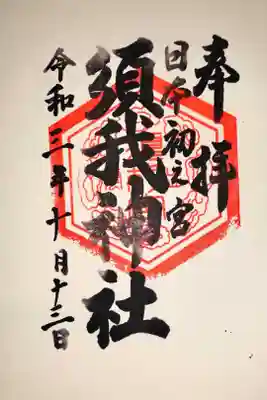 奉拝
日本初之宮
須我神社
令和三年十月十三日